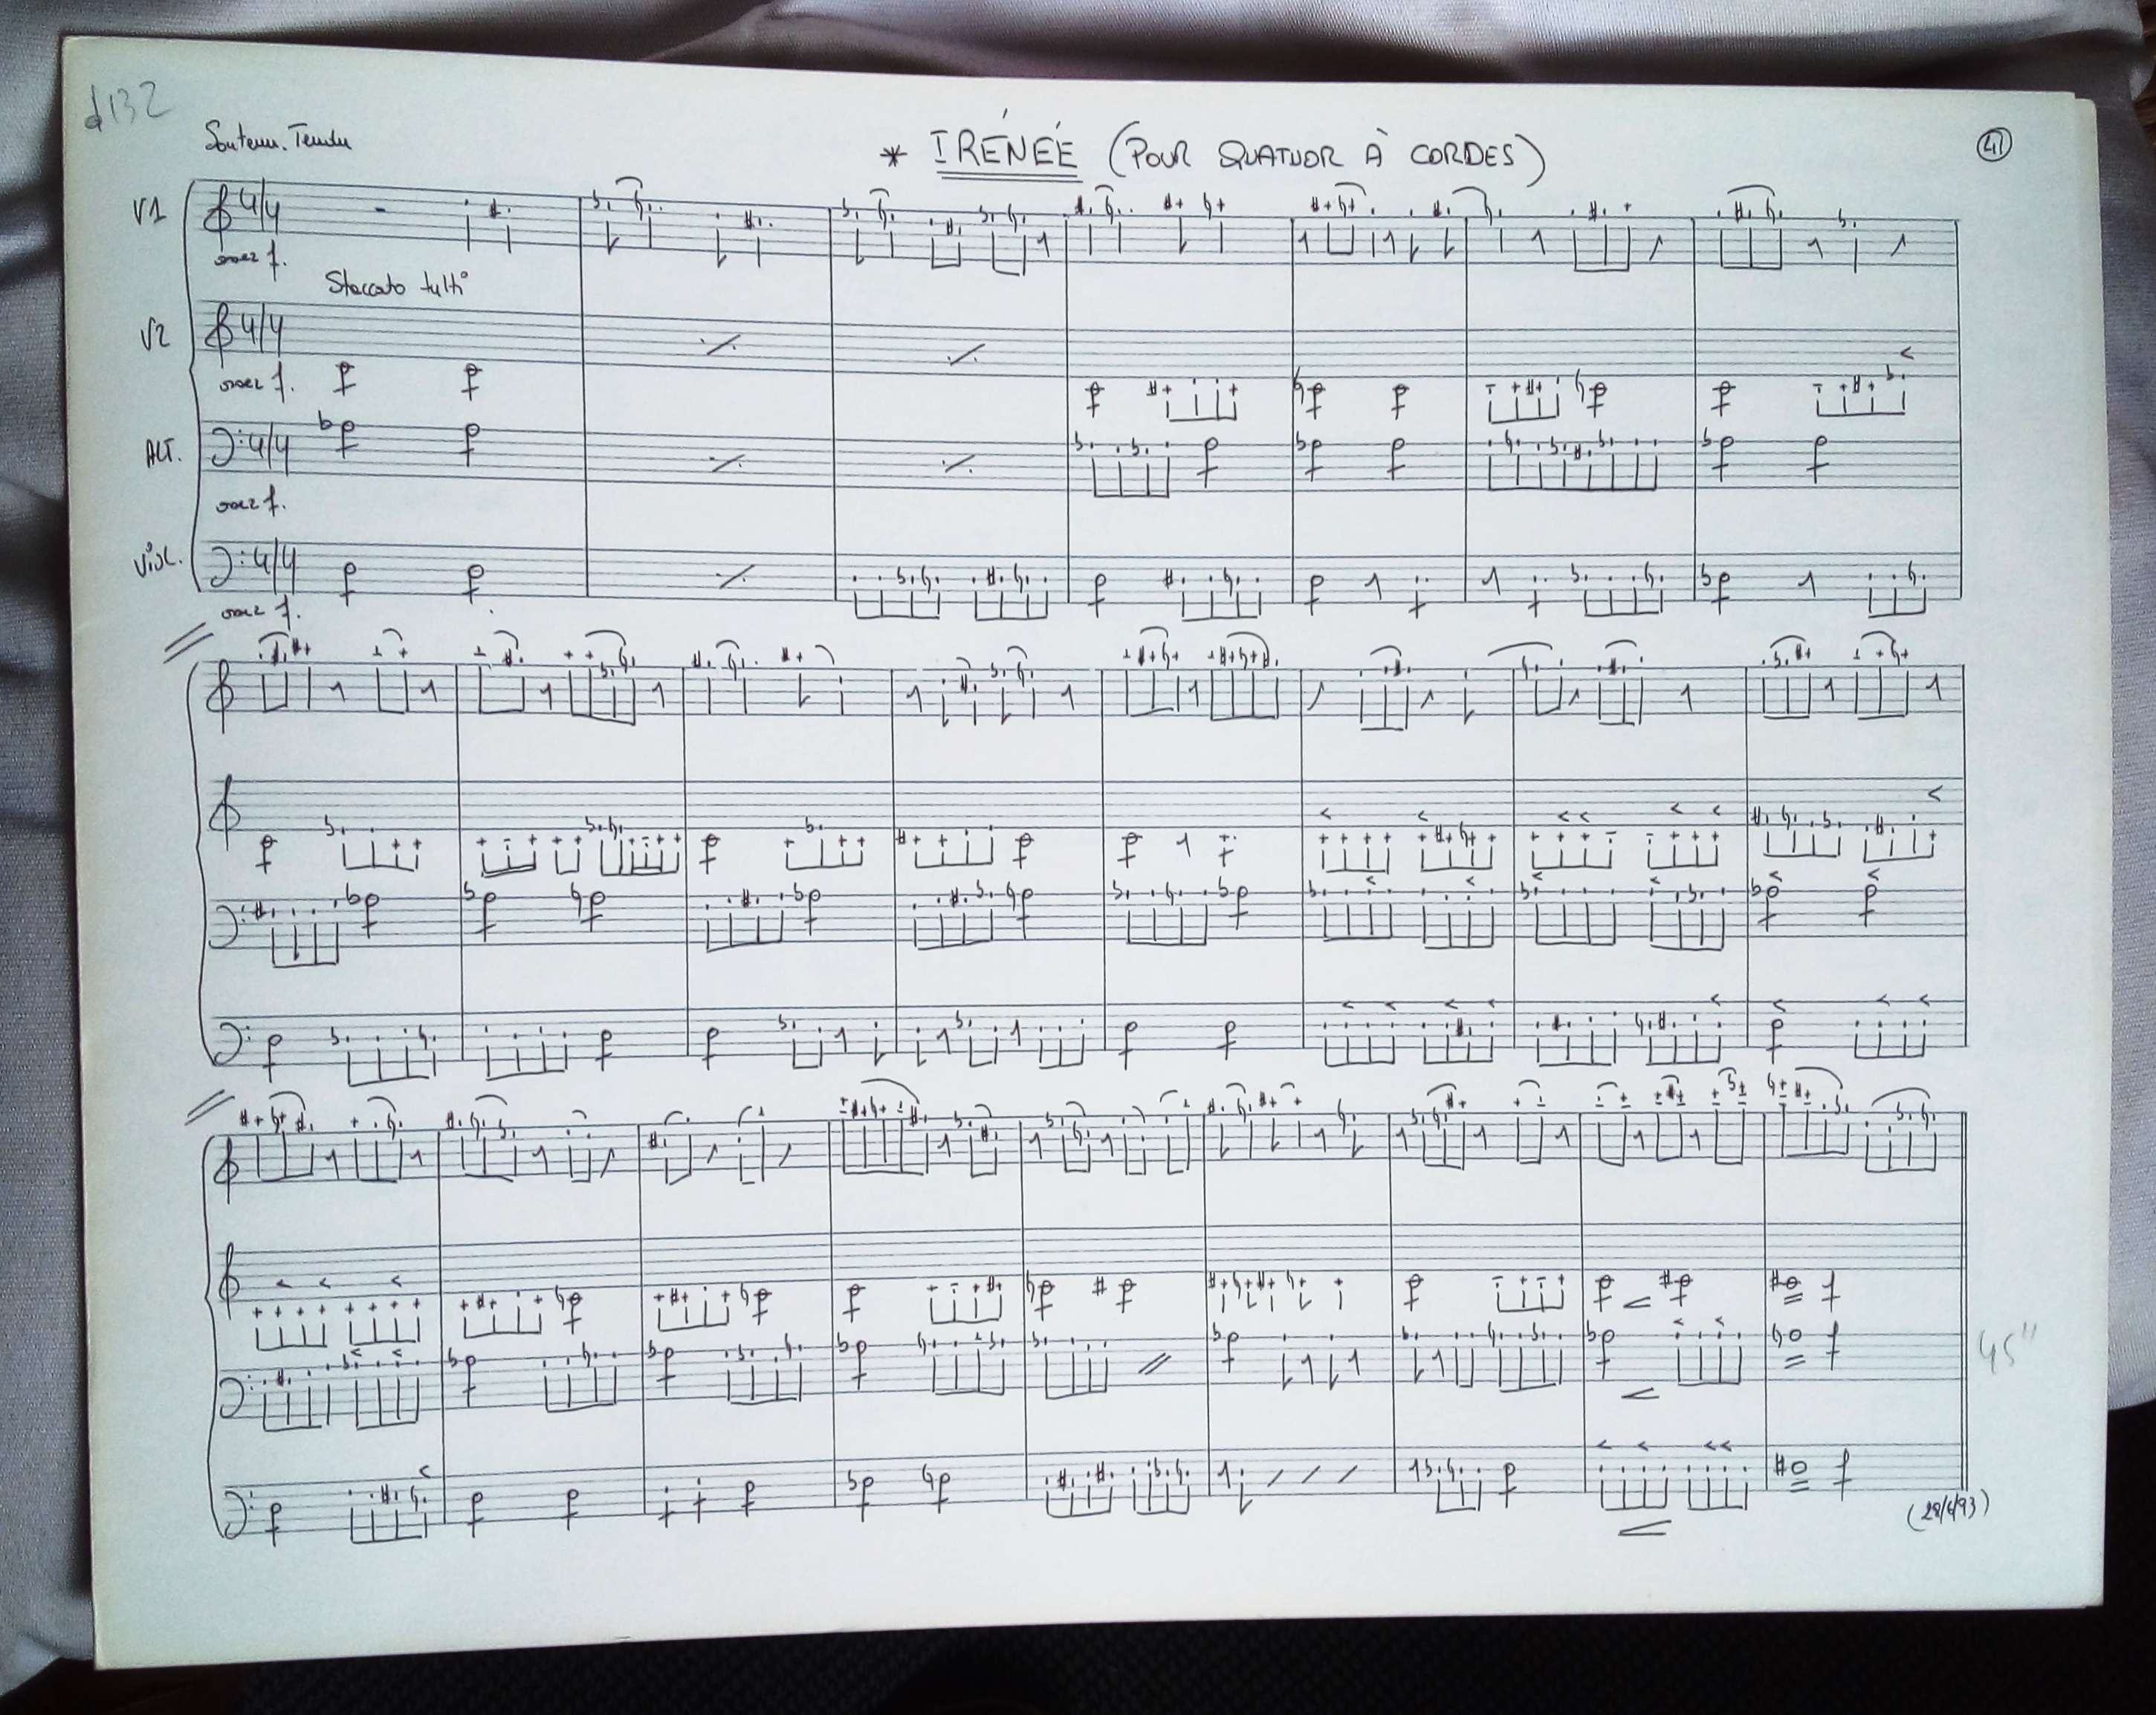 ♩132
Soutenu. Tendu
* IRÉNÉE (POUR QUATUOR À CORDES)
47
V1
4/4
assez f.
Staccato tutti
V2
4/4
assez f.
ALT.
4/4
assez f.
Viol.
4/4
assez f.
45"